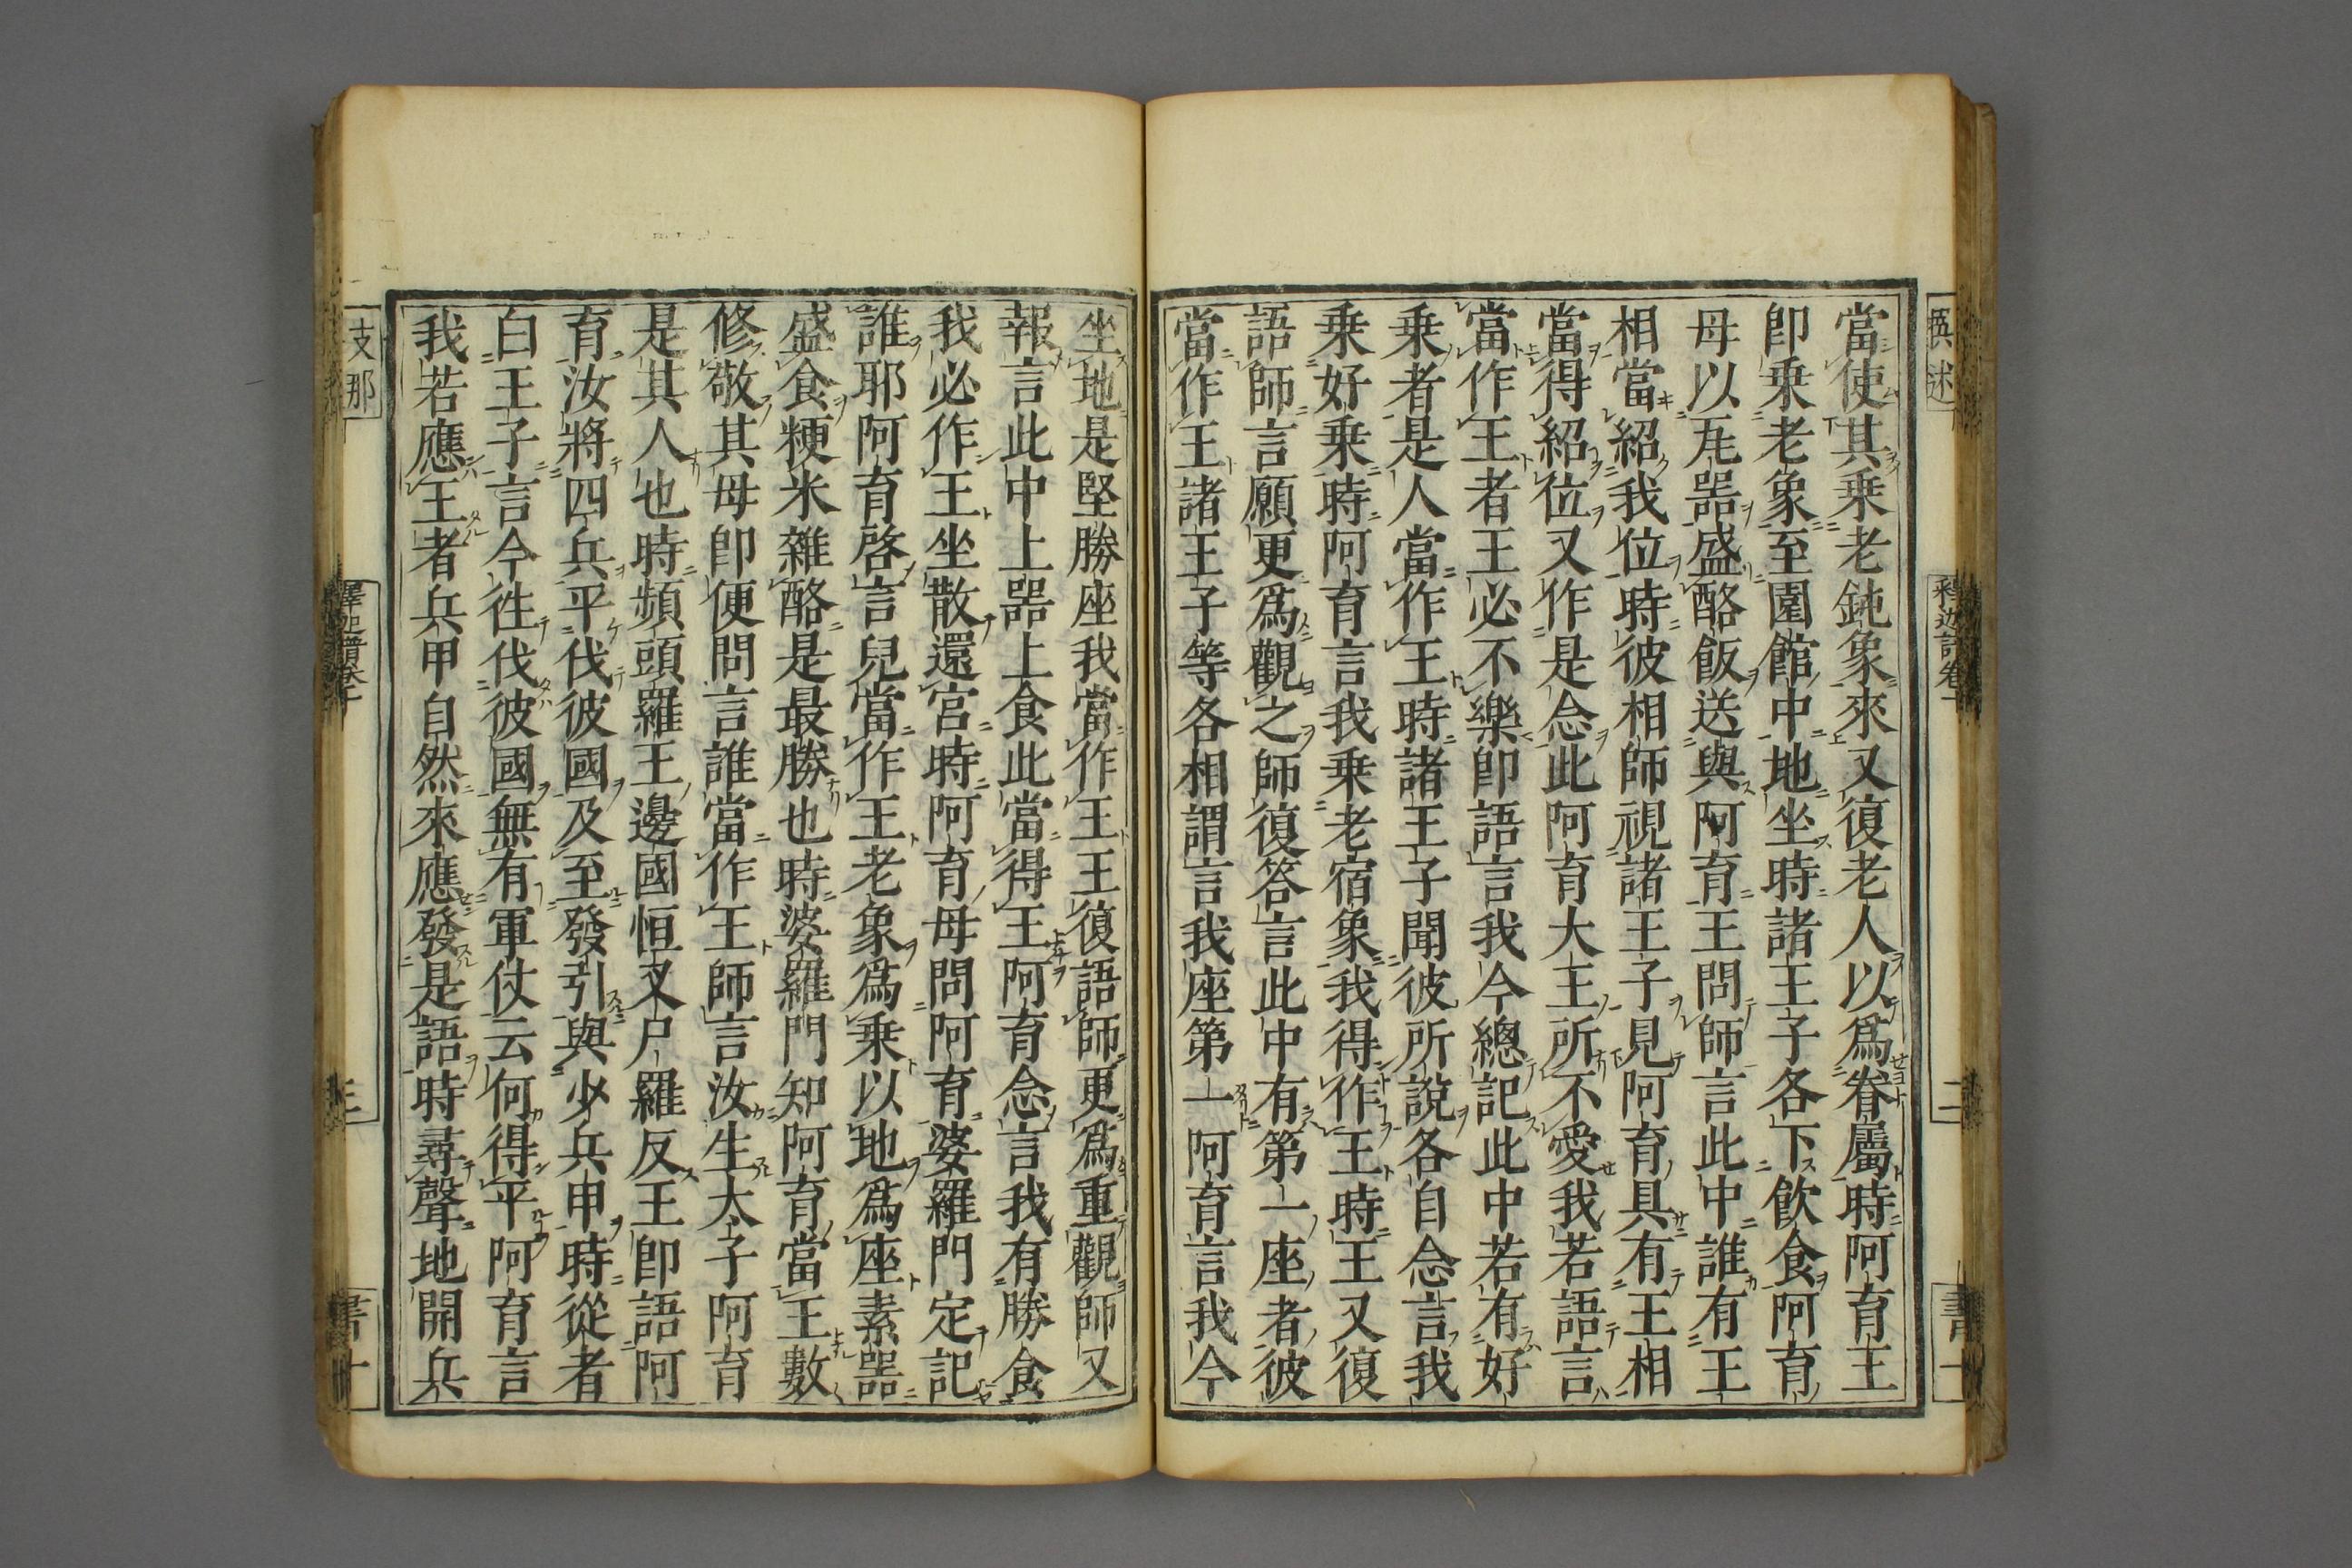 當使其乗老鈍象來又復老人以爲眷屬時阿育王
卽乗老象至園館中地坐時諸王子各下飲食阿育
母以瓦噐盛酪飯送與阿育王問師言此中誰有王
相當紹我位時彼相師視諸王子見阿育具有王相
當得紹位又作是念此阿育大王所不愛我若語言
當作王者王必不樂卽語言我今總記此中若有好
乗者是人當作王時諸王子聞彼所說各自念言我
乗好乗時阿育言我乗老宿象我得作王時王又復
語師言願更爲觀之師復答言此中有第一座者彼
當作王諸王子等各相謂言我座第一阿育言我今
坐地是堅勝座我當作王王復語師更爲重觀師又
報言此中上噐上食此當得王阿育念言我有勝食
我必作王坐散還宮時阿育母問阿育婆羅門定記
誰耶阿育啓言兒當作王老象爲乗以地爲座素噐
盛食粳米雜酪是最勝也時婆羅門知阿育當王數
修敬其母卽便問言誰當作王師言汝生太子阿育
是其人也時頻頭羅王邊國恒叉尸羅反王卽語阿
育汝將四兵平伐彼國及至發引與少兵甲時從者
白王子言今徃伐彼國無有軍仗云何得平阿育言
我若應王者兵甲自然來應發是語時尋聲地開兵
支那